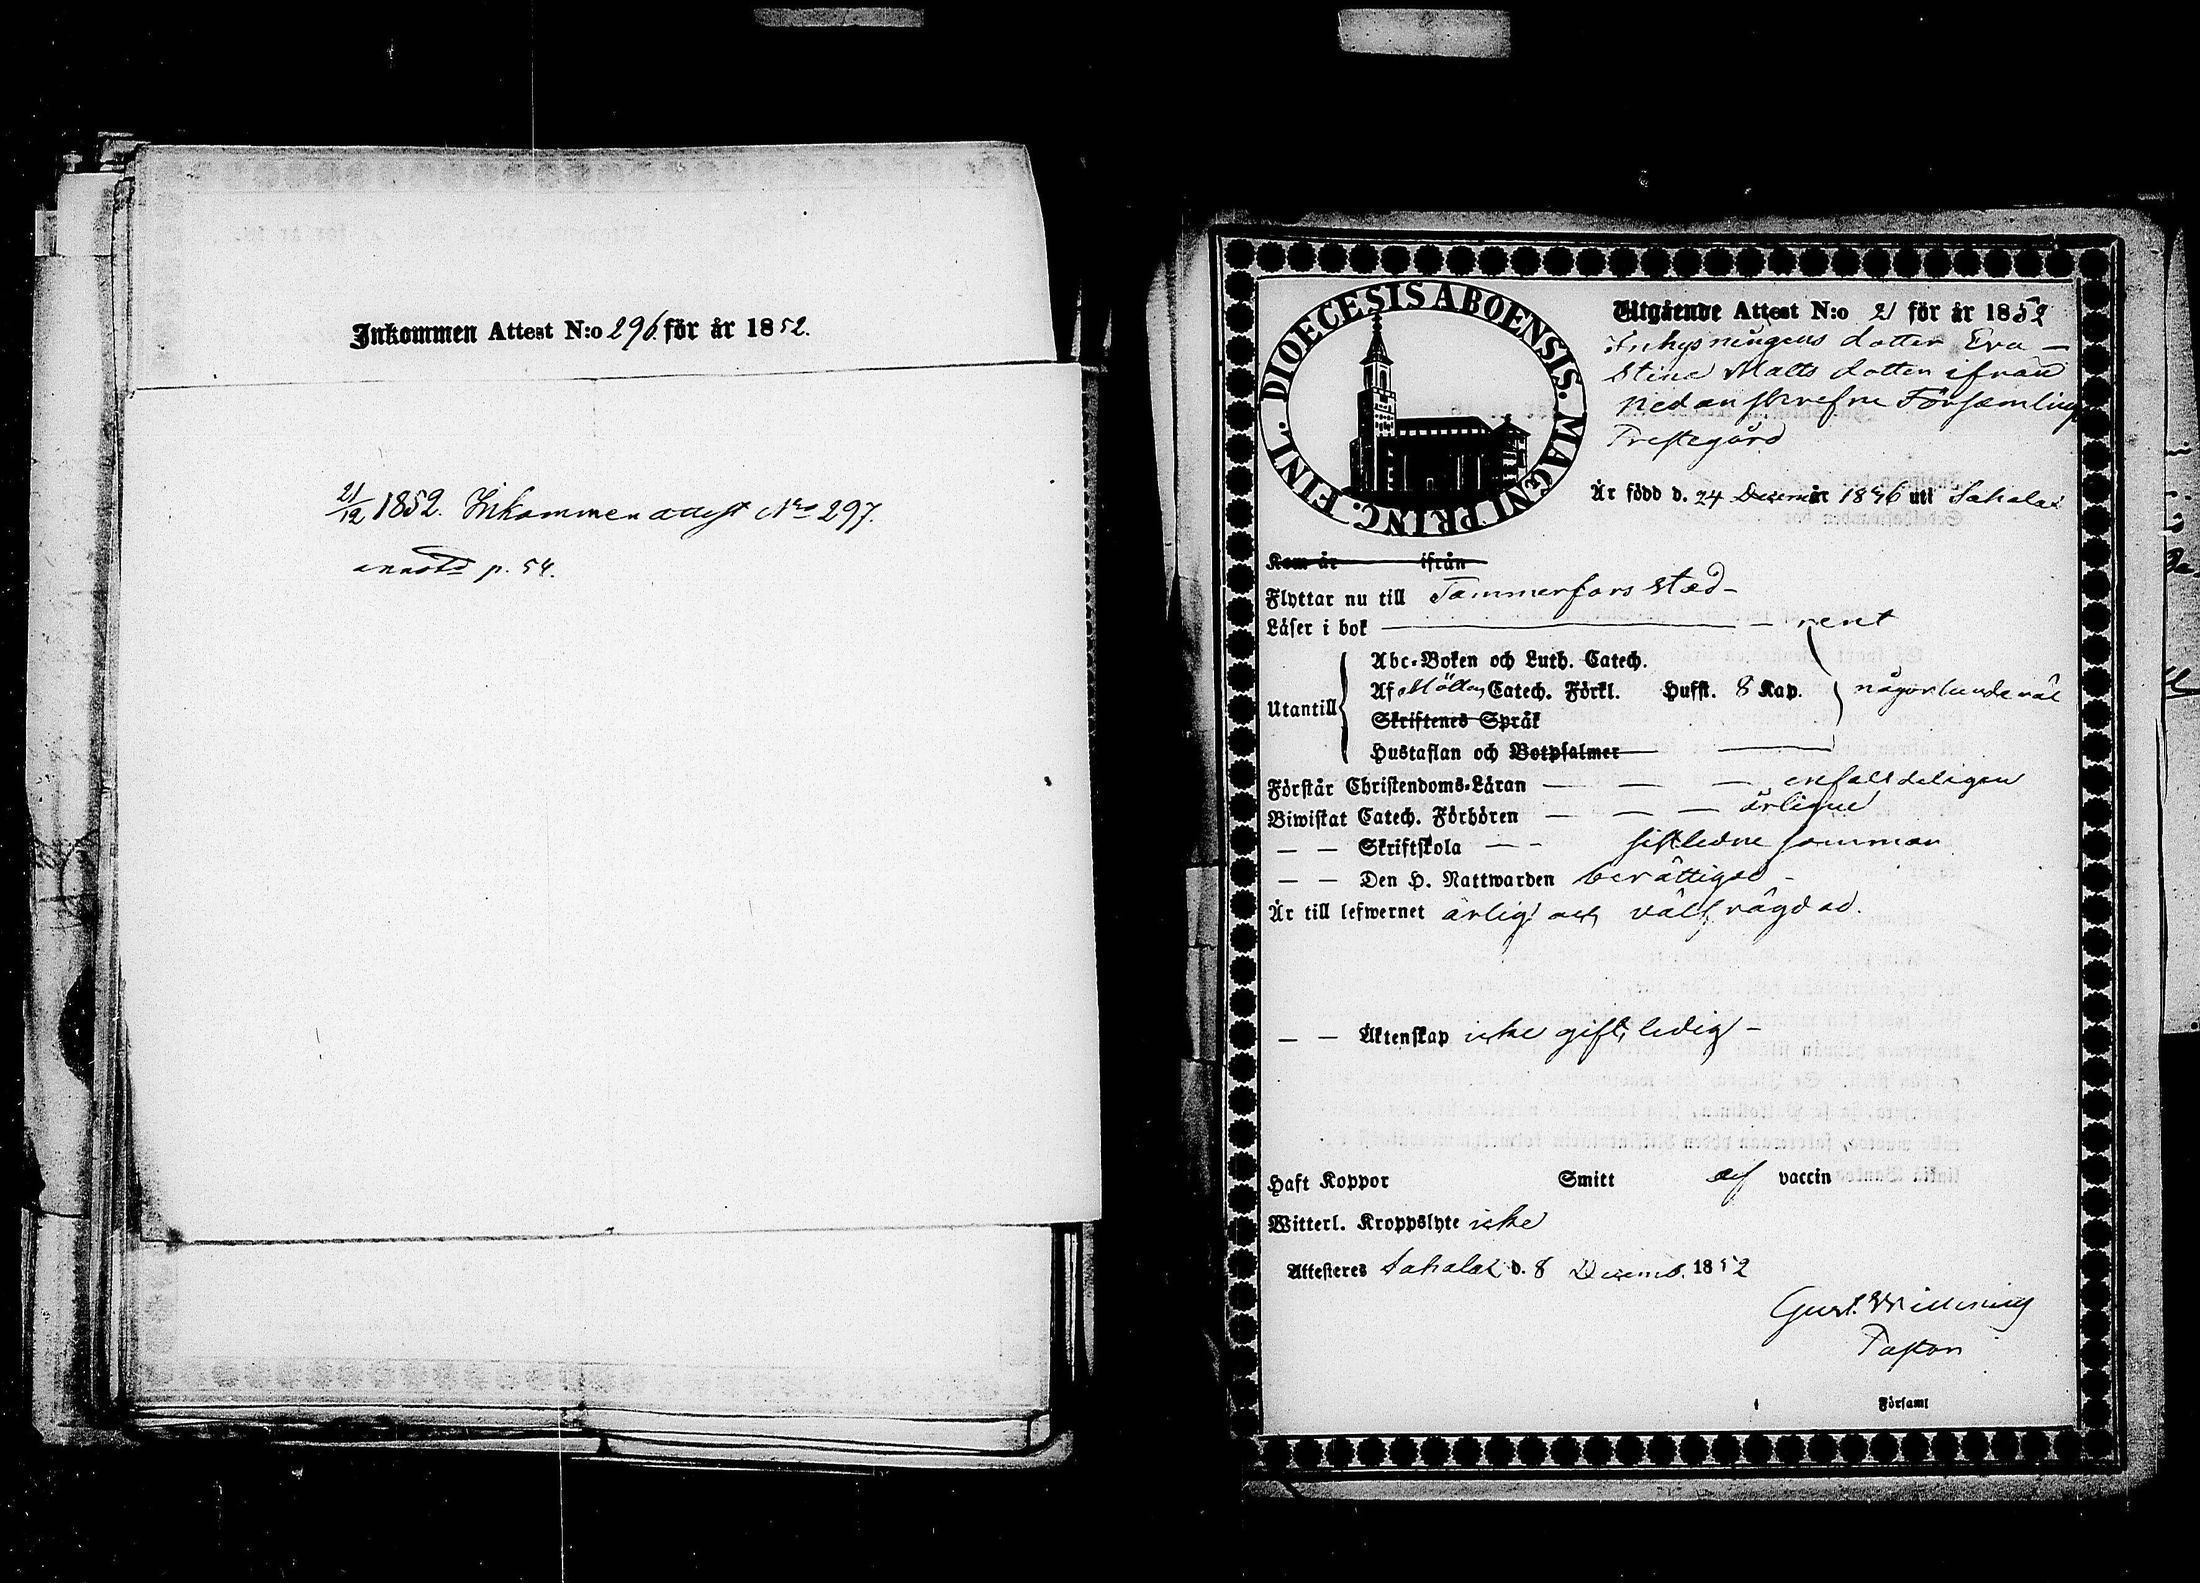 Inkommen Attest N:o 296. för år 1852.
21/12 1852. Inkommen attest Nro 297.
annotd p. 54.
DIOECESIS ABOENSIS. MAGNI PRINC. FINL.
Utgående Attest N:o 21 för år 1852
Inhysningens dotter Eva
Stina Matts dotter ifrån
Nedanskrefne Församlings
Prestegård
Är född d. 24 Decem: år 1836 uti Sahalax
Kom år ifrån
Flyttar nu till Tammerfors stad
Läser i bok rent
Utantill
Abc-Boken och Luth. Catech.
Af Möllers Catech. Förkl. Hufst. 8 Kap. någorlunda väl
Skriftenes Språk
Hustaflan och Botpsalmer
Förstår Christendoms-Läran enfaldeligen
Biwistat Catech. Förhören årligen
— — Skriftskola sistledne sommar
— — Den H. Nattwarden berättigad
Är till lefwernet ärlig och väl frägdad.
— — Äktenskap icke gift, ledig
Haft Koppor Smitt af vaccin
Witterl. Kroppslyte icke
Attesteras Sahalax d. 8 Decemb. 1852
Gust. Willenius
Pastor
Församl